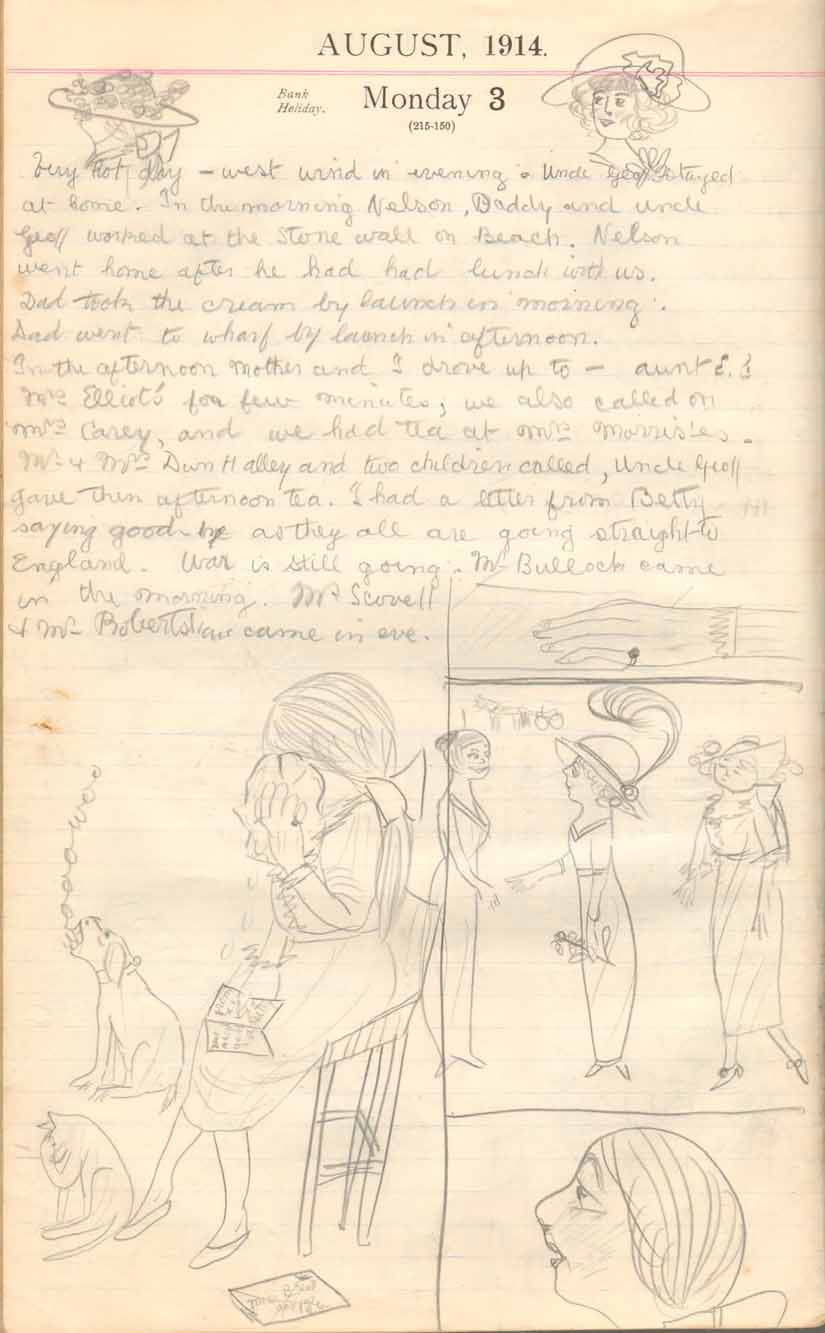 AUGUST, 1914.
Bank
Holiday.
Monday 3
(215-150)
Very hot day – west wind in evening. Uncle Geoff stayed
at home. In the morning Nelson, Daddy and uncle
Geoff worked at the stone wall on Beach. Nelson
went home after he had had lunch with us.
Dad took the cream by launch in morning.
Dad went to wharf by launch in afternoon.
In the afternoon mother and I drove up to – aunt E. &
Mrs Elliot's for few minutes; we also called on
Mrs Carey, and we had tea at Mrs Morris'es.
Mr & Mrs Dun Halley and two children called, Uncle Geoff
gave them afternoon tea. I had a letter from Betty
saying good-bye as they all are going straight to
England. War is still going. Mr Bullock came
in the morning. Mr Scovell
& Mr came in eve.